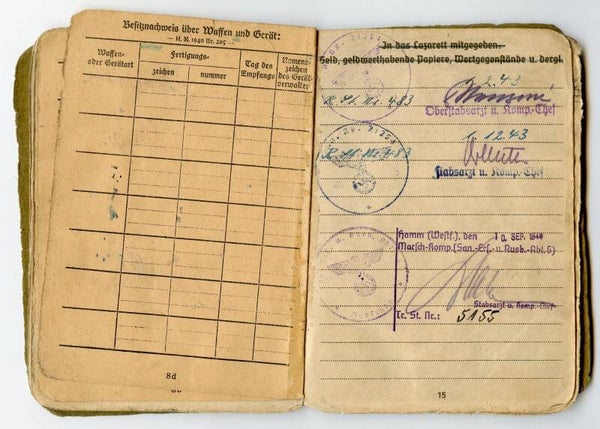 Besitznachweis über Waffen und Gerät:
— H. M. 1940 Nr. 205 —
Waffen- oder Gerätart
Fertigungs-
zeichen
nummer
Tag des Empfangs
Namenszeichen des Gerätverwalters
8d
In das Lazarett mitgegeben:
Geld, geldwerthabende Papiere, Wertgegenstände u. dergl.
2.43
Oberstabsarzt u. Komp.-Chef
1.12.43
Stabsarzt u. Komp.-Chef
Hamm (Westf.), den 10. SEP. 1944
Marsch-Komp. (San.-Ers.- u. Ausb.-Abt. 6)
Stabsarzt u. Komp.-Chef
Tr. St. Nr.: 5155
15